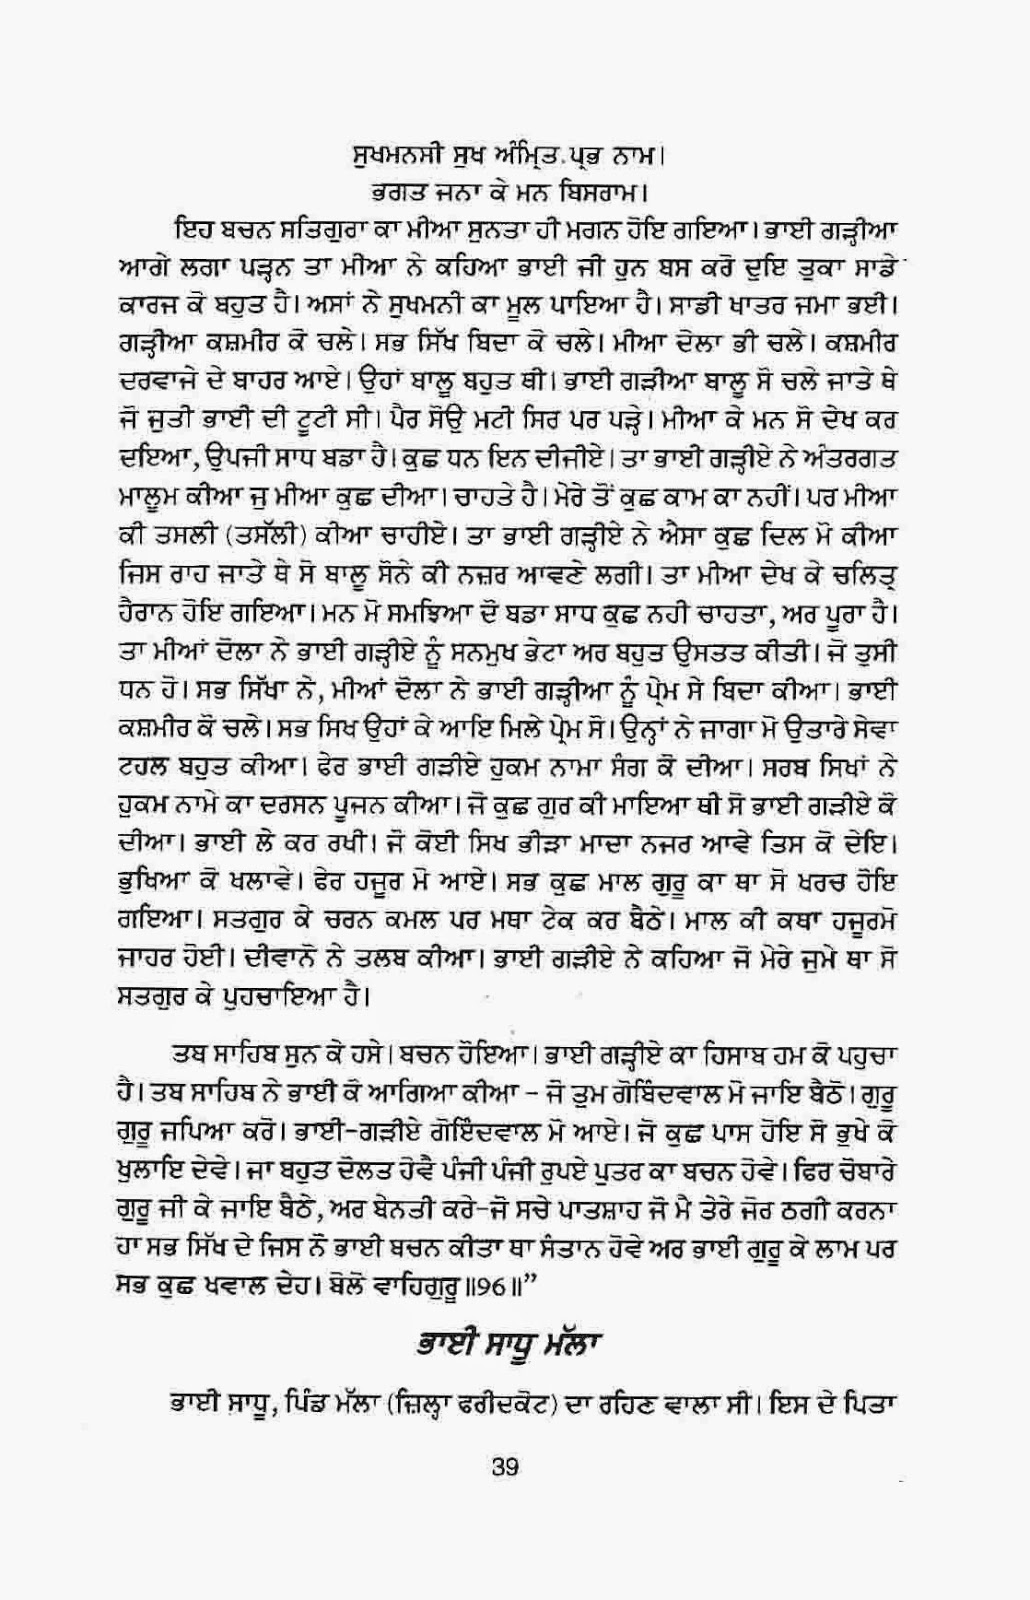 ਸੁਖਮਨਸੀ ਸੁਖ ਅੰਮ੍ਰਿਤ.ਪ੍ਰਭ ਨਾਮ।
ਭਗਤ ਜਨਾ ਕੇ ਮਨ ਬਿਸਰਾਮ।
ਇਹ ਬਚਨ ਸਤਿਗੁਰਾ ਕਾ ਮੀਆ ਸੁਨਤਾ ਹੀ ਮਗਨ ਹੋਇ ਗਇਆ। ਭਾਈ ਗੜ੍ਹੀਆ
ਆਗੇ ਲਗਾ ਪੜ੍ਹਨ ਤਾ ਮੀਆ ਨੇ ਕਹਿਆ ਭਾਈ ਜੀ ਹੁਨ ਬਸ ਕਰੋ ਦੁਇ ਤੁਕਾ ਸਾਡੇ
ਕਾਰਜ ਕੋ ਬਹੁਤ ਹੈ। ਅਸਾਂ ਨੇ ਸੁਖਮਨੀ ਕਾ ਮੂਲ ਪਾਇਆ ਹੈ। ਸਾਡੀ ਖਾਤਰ ਜਮਾ ਭਈ।
ਗੜ੍ਹੀਆ ਕਸ਼ਮੀਰ ਕੋ ਚਲੇ। ਸਭ ਸਿੱਖ ਬਿਦਾ ਕੋ ਚਲੇ। ਮੀਆ ਦੋਲਾ ਭੀ ਚਲੇ। ਕਸ਼ਮੀਰ
ਦਰਵਾਜੇ ਦੇ ਬਾਹਰ ਆਏ। ਉਹਾਂ ਬਾਲੂ ਬਹੁਤ ਥੀ। ਭਾਈ ਗੜੀਆ ਬਾਲੂ ਸੋ ਚਲੇ ਜਾਤੇ ਥੇ
ਜੋ ਜੁਤੀ ਭਾਈ ਦੀ ਟੂਟੀ ਸੀ। ਪੈਰ ਸੋਉ ਮਟੀ ਸਿਰ ਪਰ ਪੜ੍ਹੇ। ਮੀਆ ਕੇ ਮਨ ਸੋ ਦੇਖ ਕਰ
ਦਇਆ, ਉਪਜੀ ਸਾਧ ਬਡਾ ਹੈ। ਕੁਛ ਧਨ ਇਨ ਦੀਜੀਏ। ਤਾ ਭਾਈ ਗੜ੍ਹੀਏ ਨੇ ਅੰਤਰਗਤ
ਮਾਲੂਮ ਕੀਆ ਜੁ ਮੀਆ ਕੁਛ ਦੀਆ। ਚਾਹਤੇ ਹੈ। ਮੇਰੇ ਤੋਂ ਕੁਛ ਕਾਮ ਕਾ ਨਹੀਂ। ਪਰ ਮੀਆ
ਕੀ ਤਸਲੀ (ਤਸੱਲੀ) ਕੀਆ ਚਾਹੀਏ। ਤਾ ਭਾਈ ਗੜ੍ਹੀਏ ਨੇ ਐਸਾ ਕੁਛ ਦਿਲ ਮੋ ਕੀਆ
ਜਿਸ ਰਾਹ ਜਾਤੇ ਥੇ ਸੋ ਬਾਲੂ ਸੋਨੇ ਕੀ ਨਜ਼ਰ ਆਵਣੇ ਲਗੀ। ਤਾ ਮੀਆ ਦੇਖ ਕੇ ਚਲਿਤ੍ਰ
ਹੈਰਾਨ ਹੋਇ ਗਇਆ। ਮਨ ਮੋ ਸਮਝਿਆ ਦੋ ਬਡਾ ਸਾਧ ਕੁਛ ਨਹੀ ਚਾਹਤਾ, ਅਰ ਪੂਰਾ ਹੈ।
ਤਾ ਮੀਆਂ ਦੋਲਾ ਨੇ ਭਾਈ ਗੜ੍ਹੀਏ ਨੂੰ ਸਨਮੁਖ ਭੇਟਾ ਅਰ ਬਹੁਤ ਉਸਤਤ ਕੀਤੀ। ਜੋ ਤੁਸੀ
ਧਨ ਹੋ। ਸਭ ਸਿੱਖਾ ਨੇ, ਮੀਆਂ ਦੋਲਾ ਨੇ ਭਾਈ ਗੜ੍ਹੀਆ ਨੂੰ ਪ੍ਰੇਮ ਸੇ ਬਿਦਾ ਕੀਆ। ਭਾਈ
ਕਸ਼ਮੀਰ ਕੋ ਚਲੇ। ਸਭ ਸਿਖ ਉਹਾਂ ਕੇ ਆਇ ਮਿਲੇ ਪ੍ਰੇਮ ਸੋ। ਉਨ੍ਹਾਂ ਨੇ ਜਾਗਾ ਮੋ ਉਤਾਰੇ ਸੇਵਾ
ਟਹਲ ਬਹੁਤ ਕੀਆ। ਫੇਰ ਭਾਈ ਗੜੀਏ ਹੁਕਮ ਨਾਮਾ ਸੰਗ ਕੋ ਦੀਆ। ਸਰਬ ਸਿਖਾਂ ਨੇ
ਹੁਕਮ ਨਾਮੇ ਕਾ ਦਰਸਨ ਪੂਜਨ ਕੀਆ। ਜੋ ਕੁਛ ਗੁਰ ਕੀ ਮਾਇਆ ਥੀ ਸੋ ਭਾਈ ਗੜੀਏ ਕੋ
ਦੀਆ। ਭਾਈ ਲੇ ਕਰ ਰਖੀ। ਜੋ ਕੋਈ ਸਿਖ ਭੀੜਾ ਮਾਦਾ ਨਜਰ ਆਵੇ ਤਿਸ ਕੋ ਦੇਇ।
ਭੁਖਿਆ ਕੋ ਖਲਾਵੇ। ਫੇਰ ਹਜੂਰ ਮੋ ਆਏ। ਸਭ ਕੁਛ ਮਾਲ ਗੁਰੂ ਕਾ ਥਾ ਸੋ ਖਰਚ ਹੋਇ
ਗਇਆ। ਸਤਗੁਰ ਕੇ ਚਰਨ ਕਮਲ ਪਰ ਮਥਾ ਟੇਕ ਕਰ ਬੈਠੇ। ਮਾਲ ਕੀ ਕਥਾ ਹਜੂਰਮੋ
ਜਾਹਰ ਹੋਈ। ਦੀਵਾਨੋ ਨੇ ਤਲਬ ਕੀਆ। ਭਾਈ ਗੜੀਏ ਨੇ ਕਹਿਆ ਜੋ ਮੇਰੇ ਜੁਮੇ ਥਾ ਸੋ
ਸਤਗੁਰ ਕੇ ਪੁਹਚਾਇਆ ਹੈ।
ਤਬ ਸਾਹਿਬ ਸੁਨ ਕੇ ਹਸੇ। ਬਚਨ ਹੋਇਆ। ਭਾਈ ਗੜ੍ਹੀਏ ਕਾ ਹਿਸਾਬ ਹਮ ਕੋ ਪਹੁਚਾ
ਹੈ। ਤਬ ਸਾਹਿਬ ਨੇ ਭਾਈ ਕੋ ਆਗਿਆ ਕੀਆ - ਜੋ ਤੁਮ ਗੋਬਿੰਦਵਾਲ ਮੋ ਜਾਇ ਬੈਠੋ। ਗੁਰੂ
ਗੁਰੂ ਜਪਿਆ ਕਰੋ। ਭਾਈ-ਗੜੀਏ ਗੋਇੰਦਵਾਲ ਮੋ ਆਏ। ਜੋ ਕੁਛ ਪਾਸ ਹੋਇ ਸੋ ਭੁਖੇ ਕੋ
ਖੁਲਾਇ ਦੇਵੇ। ਜਾ ਬਹੁਤ ਦੋਲਤ ਹੋਵੈ ਪੰਜੀ ਪੰਜੀ ਰੁਪਏ ਪੁਤਰ ਕਾ ਬਚਨ ਹੋਵੇ। ਫਿਰ ਚੋਬਾਰੇ
ਗੁਰੂ ਜੀ ਕੇ ਜਾਇ ਬੈਠੇ, ਅਰ ਬੇਨਤੀ ਕਰੇ-ਜੋ ਸਚੇ ਪਾਤਸ਼ਾਹ ਜੋ ਮੈ ਤੇਰੇ ਜੋਰ ਠਗੀ ਕਰਨਾ
ਹਾ ਸਭ ਸਿੱਖ ਦੇ ਜਿਸ ਨੋ ਭਾਈ ਬਚਨ ਕੀਤਾ ਥਾ ਸੰਤਾਨ ਹੋਵੇ ਅਰ ਭਾਈ ਗੁਰੂ ਕੇ ਲਾਮ ਪਰ
ਸਭ ਕੁਛ ਖਵਾਲ ਦੇਹ। ਬੋਲੋ ਵਾਹਿਗੁਰੂ॥੧੬॥”
ਭਾਈ ਸਾਧੂ ਮੱਲਾ
ਭਾਈ ਸਾਧੂ, ਪਿੰਡ ਮੱਲਾ (ਜ਼ਿਲ੍ਹਾ ਫਰੀਦਕੋਟ) ਦਾ ਰਹਿਣ ਵਾਲਾ ਸੀ। ਇਸ ਦੇ ਪਿਤਾ
39